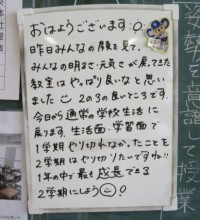 おはようございます！
昨日みんなの顔を見て、
みんなの明るさ・元気さが戻ってきた
教室はやっぱり良いなと思い
ました 2の3の良いところです。
今日から通常の学校生活に
戻ります。生活面・学習面で
1学期やり切れなかったことを
2学期はやり切りたいですね!!
1年の中で最も成長できる
2学期にしよう!
姿勢を意識して授業